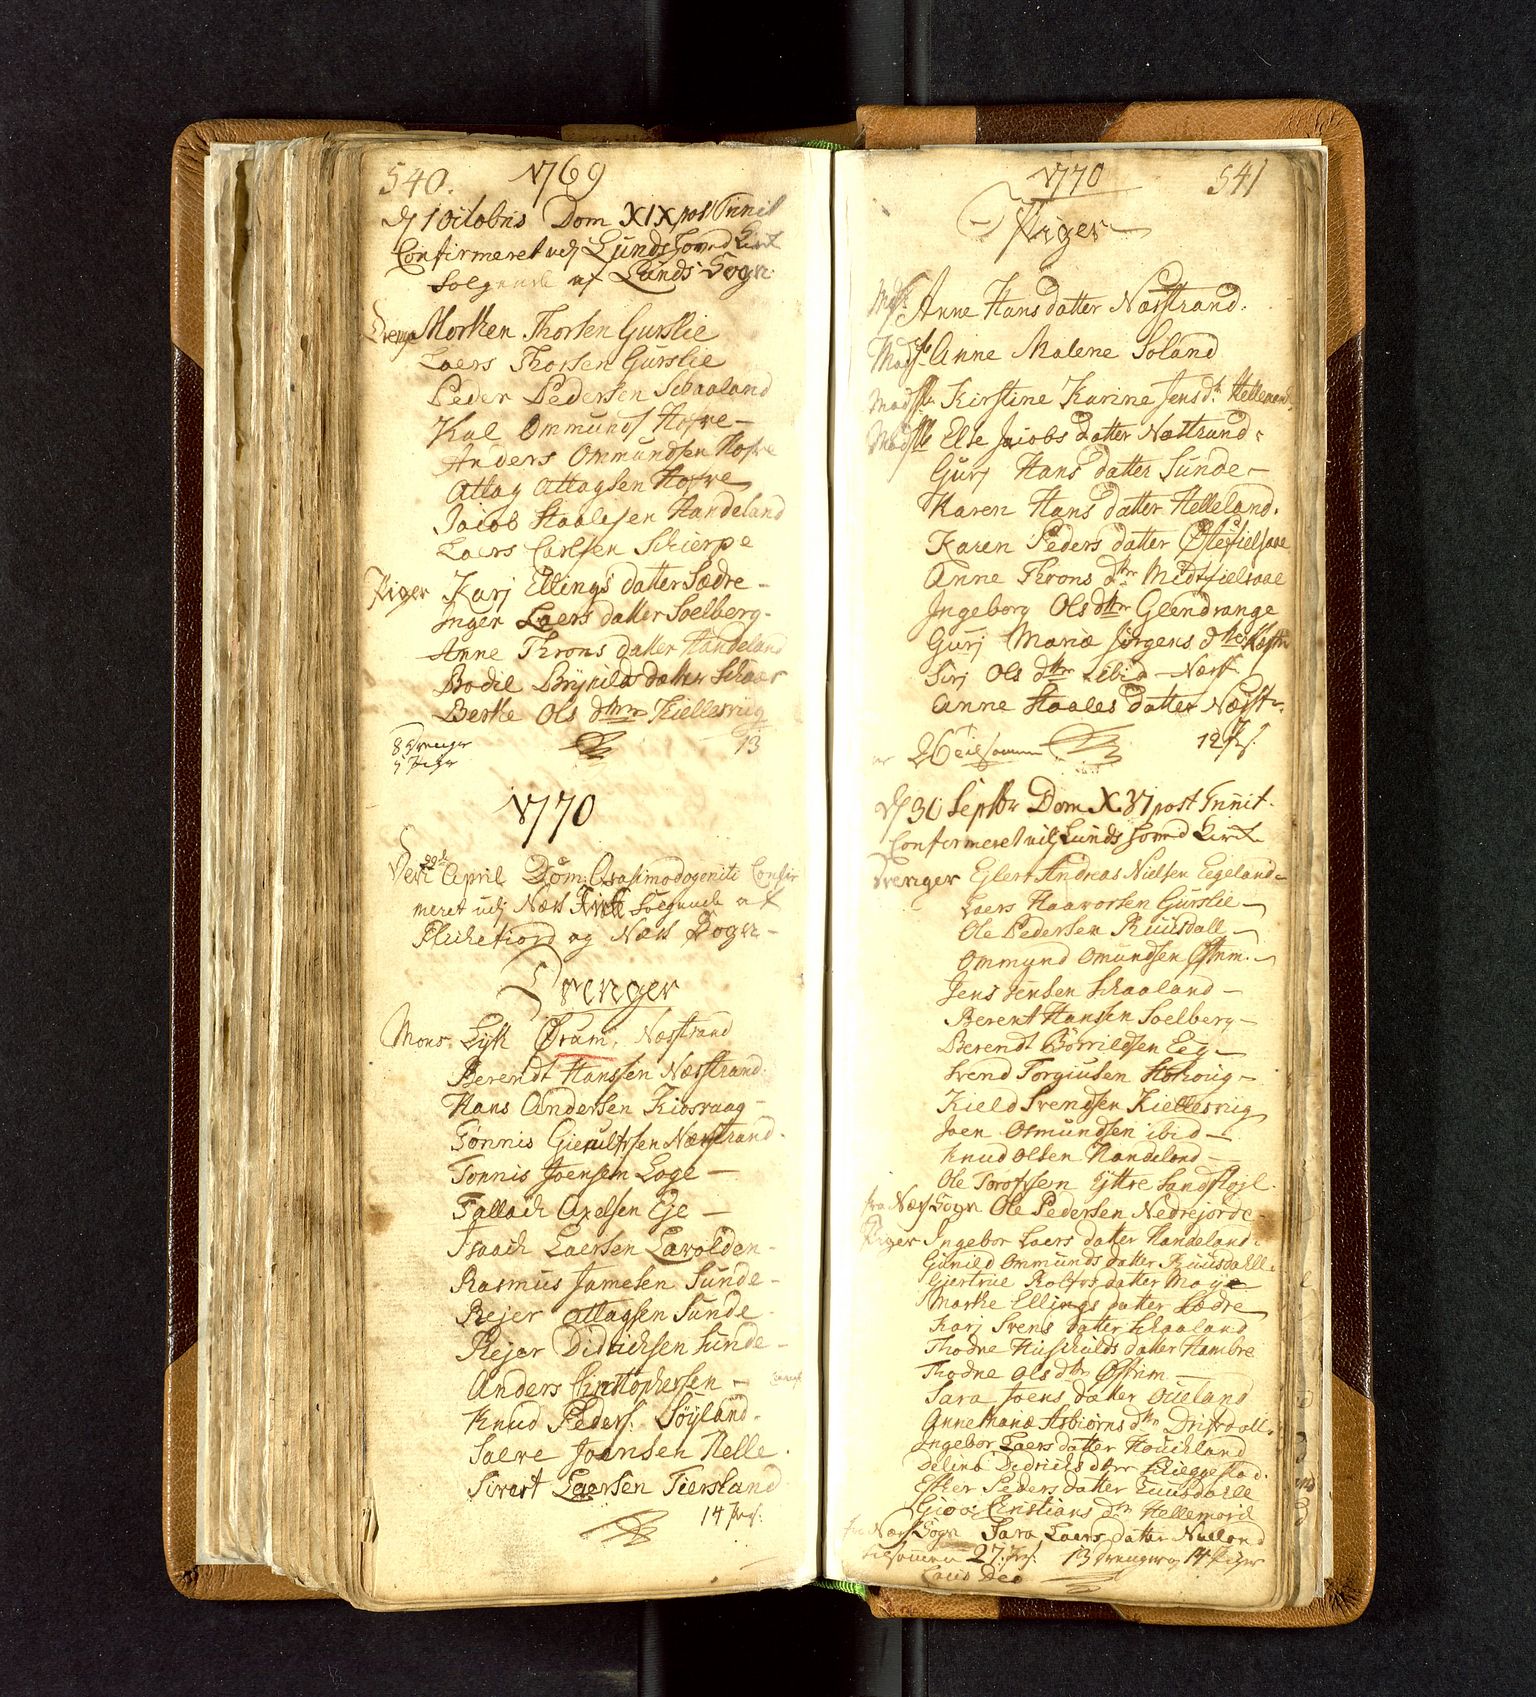 540. 1769
D 1 Octobris Dom XIX post Trinit
Confirmeret udj Lunds hoved Kirk
følgende af Lunds Sogn
Drenge Morten Thorsen Gurslie
Laers Thorsen Gurslie
Peder Pedersen Schaaland
Kal Ommunds Hofve
Anders Ommundsen Hofve
Attag Attagsen Hofve
Jacob Staalesen Handeland
Laers Carlsen Schierpe
Piger Karj Ellings datter Sædre
Inger Laers datter Soelberg
Anne Throns datter Handeland
Bodil Brynilds datter Schaar
Berte Ols dttrr Kiellesviig
8 Drenger 13
5 Piger
1770
Den 22de April Dom: Qvasimodogeniti Confir
meret udj Næss Kirk følgende af
Flickefiord og Næss Sogn
Drenger
Mons. Lyth Ørum, Næsstrand
Berendt Hanssen Næsstrand
Hans Andersen Kiosvaag
Tönnis Gieruldsen Næsstrand
Tonnis Joensen Loge
Tallach Axelsen Ege
Isaach Laersen Lavolden
Rasmus Jamesen Sunde
Rejer Attagsen Sunde
Rejer Didrichsen Sunde
Anders Christophersen
Knud Peders. Söyland
Saeve Joensen Helle
Sivert Laersen Tiersland
14 Pers.
1770 541
Piger
Mdsle Anne Hansdatter Næsstrand.
Madsle Anne Malene Soland
Madslle Kirstine Karine Jensd. Hellemand
Madslle Else Jacobs datter Næstrand
Gurj Hans datter Sunde
Karen Hans datter Helleland.
Karen Peders datter Östefielsaae
Anne Throns dtr Midtfielsaae
Ingeborg Ols dttr Geendrange
Gurj Maria Jörgens dtter
Sirj Ols dttr ibid Næst
Anne Staales datter Næst
26 tilsammen 12 Prs.
D 30 Septbr Dom XVI post Trinit.
Confirmeret udj Lunds hoved Kirk
Drenger Eglert Andreas Nielsen Eegeland
Laers Haavorsen Gurslie
Ole Pedersen Ruusdall
Ommund Omundsen Östrim.
Jens Jensen Schaaland
Berent Hansen Soelberg
Berendt Börrildsen Eeg
Svend Torgiusen
Kield Svendsen Kiellesviig
Joen Osmundsen ibid
Knud Olsen Handeland
Ole Torolfsen Yttre Sandsköjl
fra Næss Sogn Ole Pedersen Nedrejorde
Piger Ingebor Laers datter Handeland
Gunild Ommunds datter Ruusdalle
Giertrue Rolfs datter Moye
Marthe Ellings datter Sædre
Karj Svens datter Schaaland
Thodne Huskulds datter Hambre
Thodne Ols dtr Östrim
Sara Joens datter Oueland
Anne Maria Asbiörns dtr Drifdall
Ingebor Laers datter Houchland
Didrichs dttr Scheggestad
Ester Peders datter Ruusdalle
Christians dtr Hellemoed
fra Næss Sogn Sara Laers datter
tilsammen 27. Prs. 13 Drenger og 14 Piger
Laus Deo